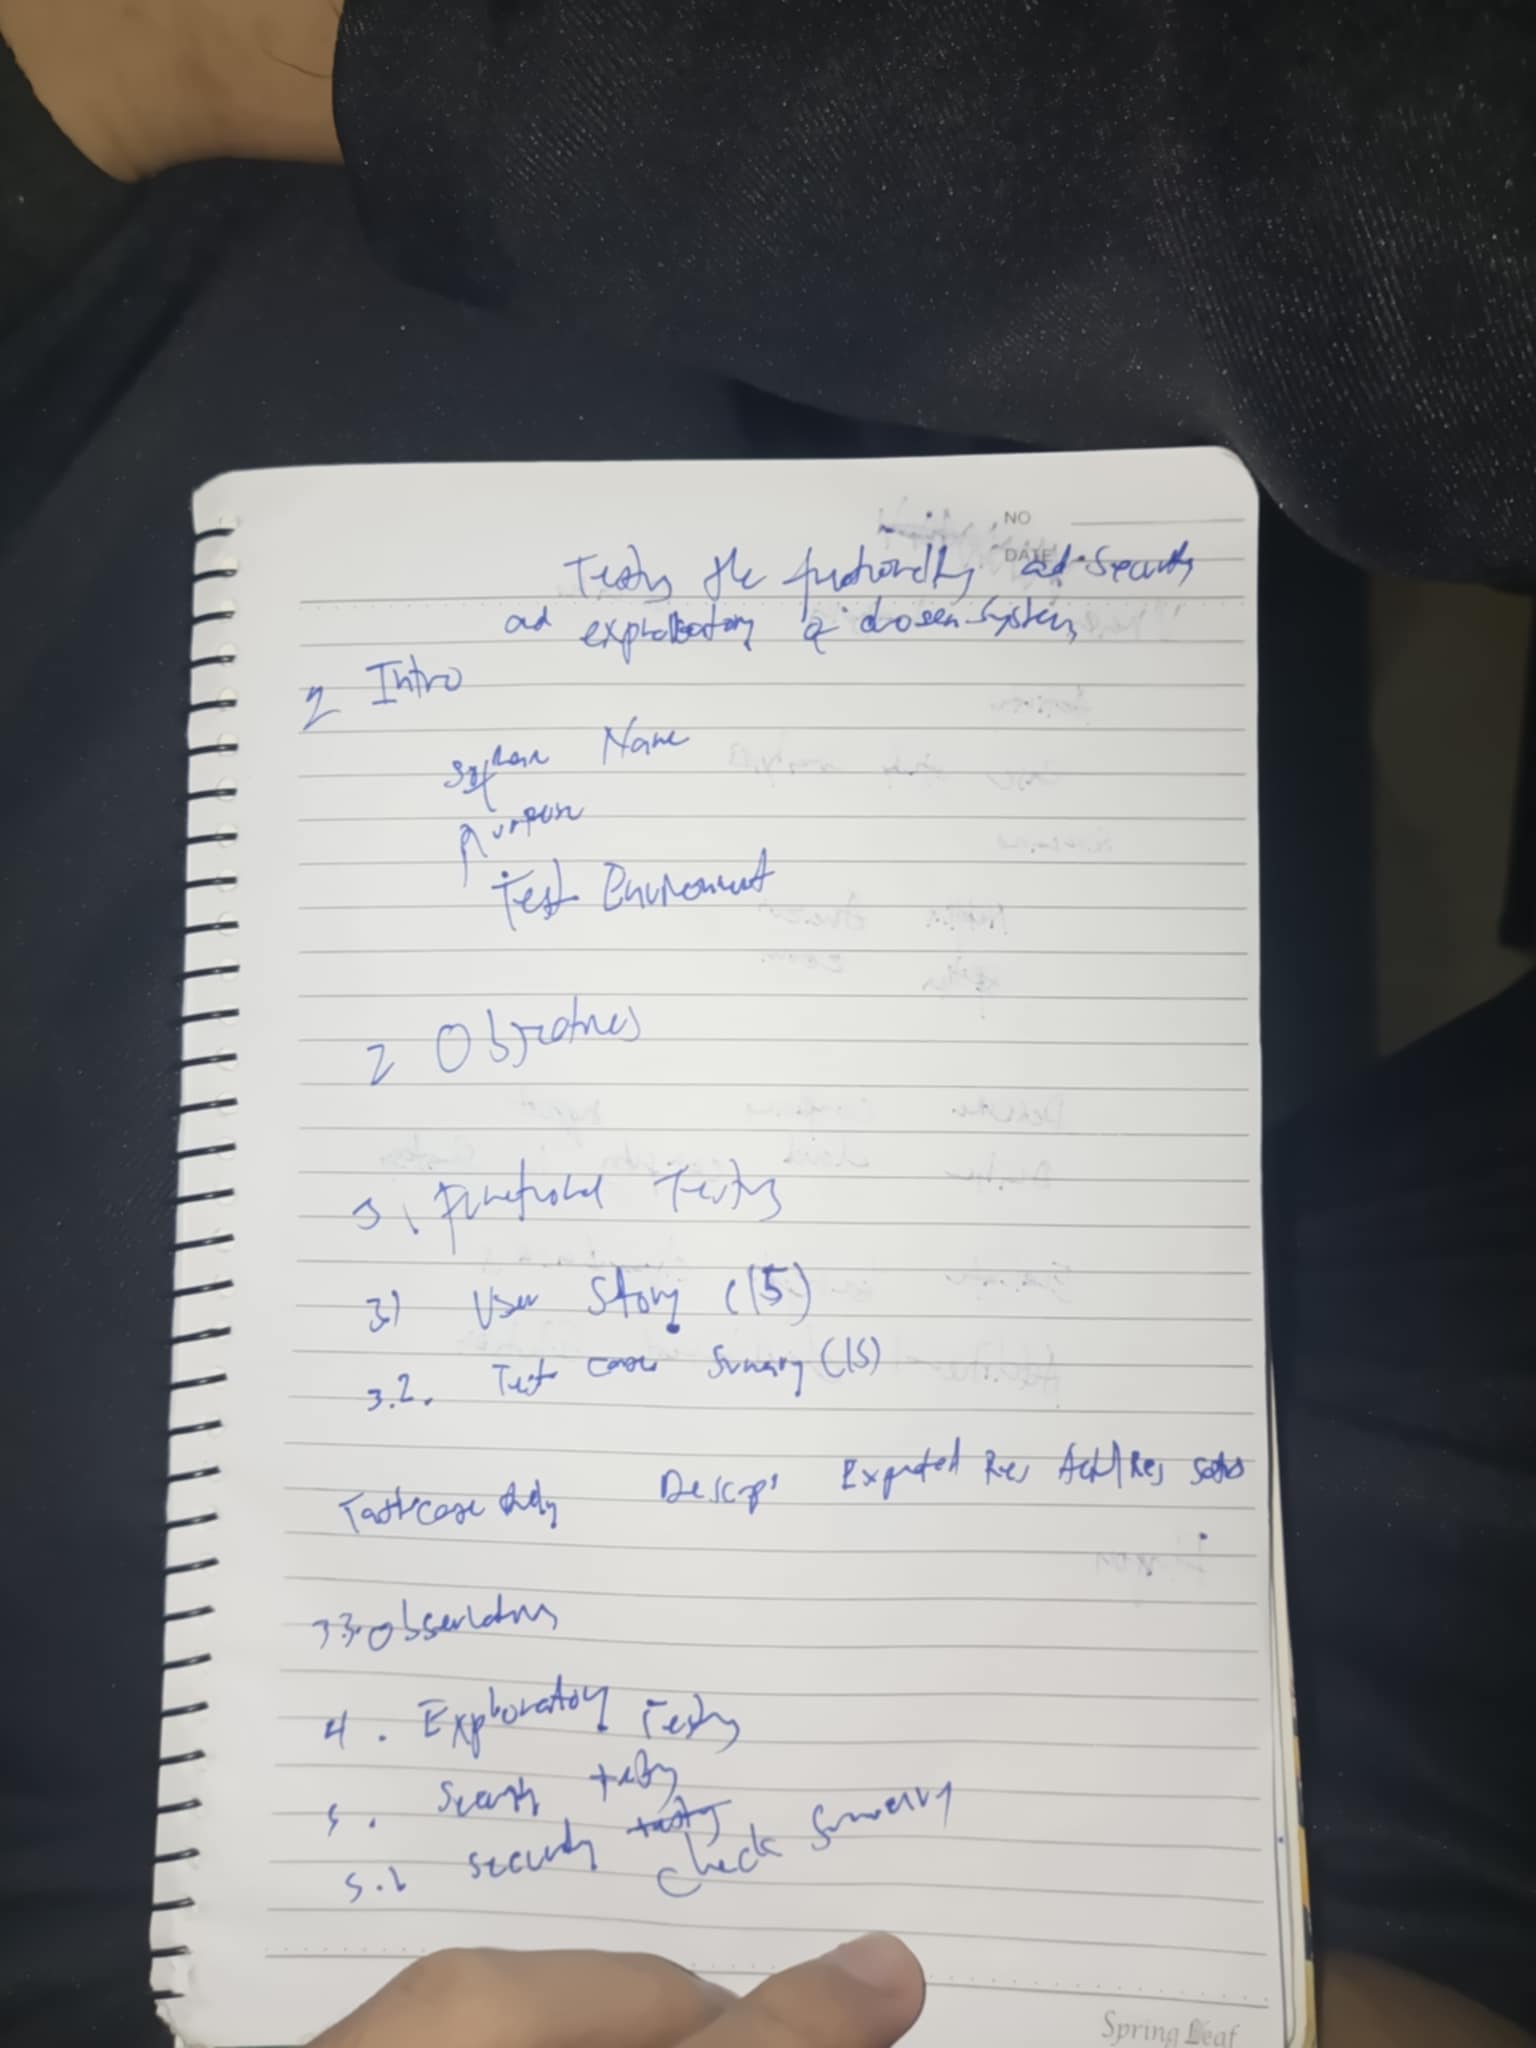 NO
DATE
Testing the functionality and Security
and exploratory a chosen System
2 Intro
System Name
Purpose
Test Environment
2 Objectives
3. Functional Testing
3.1 User Story (15)
3.2. Test case Summary (15)
Test case Descrip Expected Res Actl Res
3.3. Observations
4. Exploratory Testing
5. Security testing
5.1 Security testing check Summary
Spring Leaf